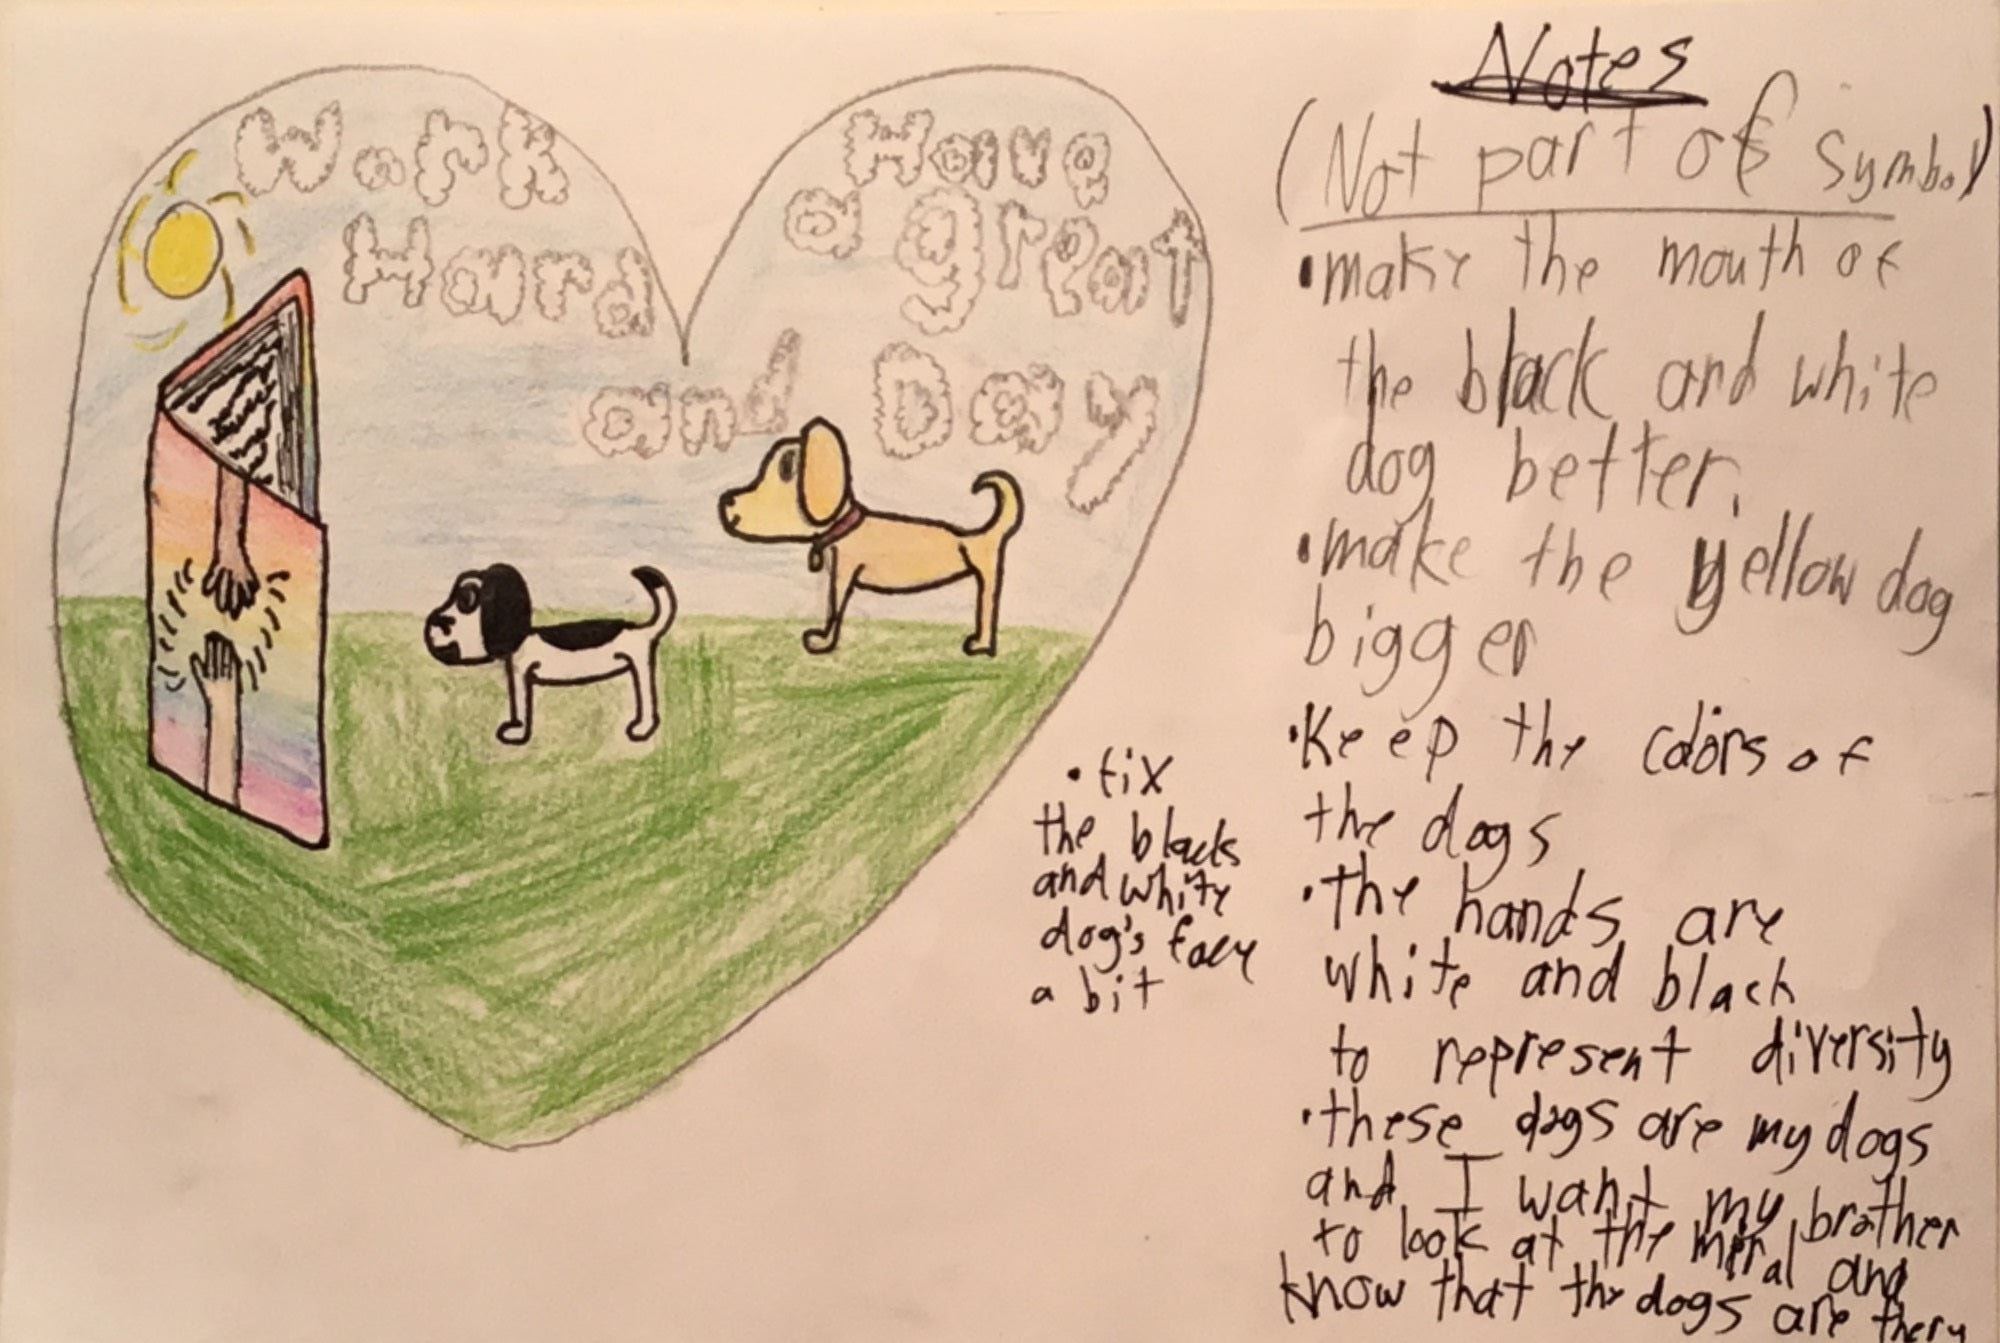 Work
Hard
and
Have
a great
Day
Notes
(Not part of symbol)
• make the mouth of
the black and white
dog better.
• make the yellow dog
bigger
• Keep the colors of
the dogs
• the hands are
white and black
to represent diversity
• these dogs are my dogs
and I want my brother
to look at the and
know that the dogs are there
• fix
the black
and white
dog's face
a bit